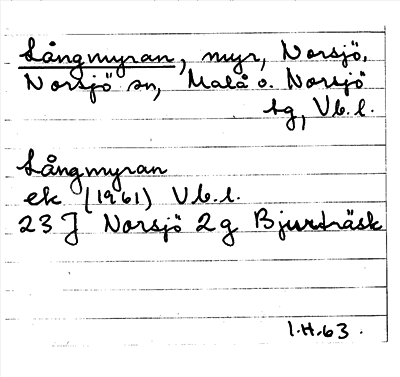 Långmyran, myr, Norsjö,
Norsjö sn, Malå o. Norsjö
tg, Vb. l.
Långmyran
ek (1961) Vb. l.
23 J Norsjö 2g Bjurträsk
I.H.63.